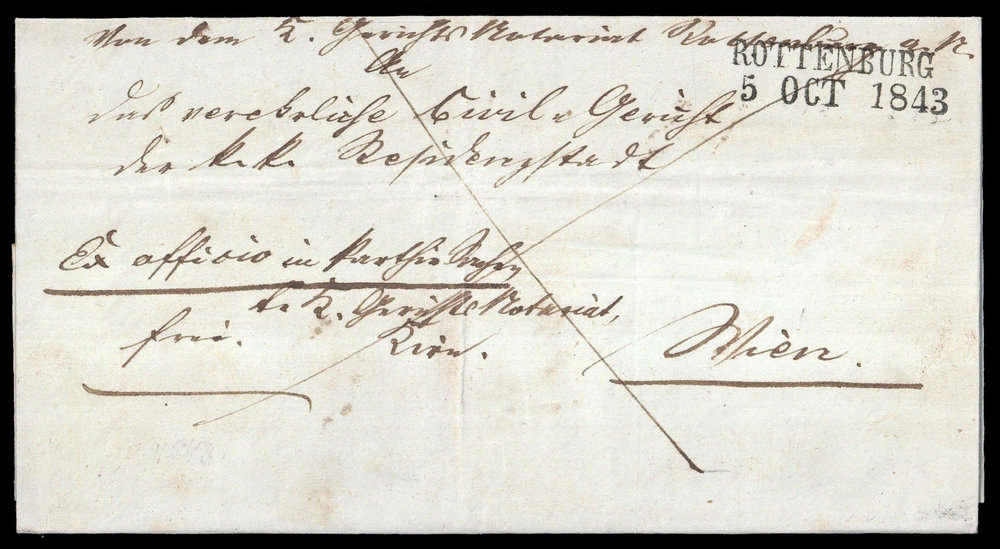 Von dem K. Gerichts Notariat Rottenburg a. N.
ROTTENBURG
5 OCT 1843
An
das verehrliche Civil-Gericht
der k. k. Residenzstadt
Ex officio in Parthie Sachen
K. Gerichts Notariat,
frei.
Wien.